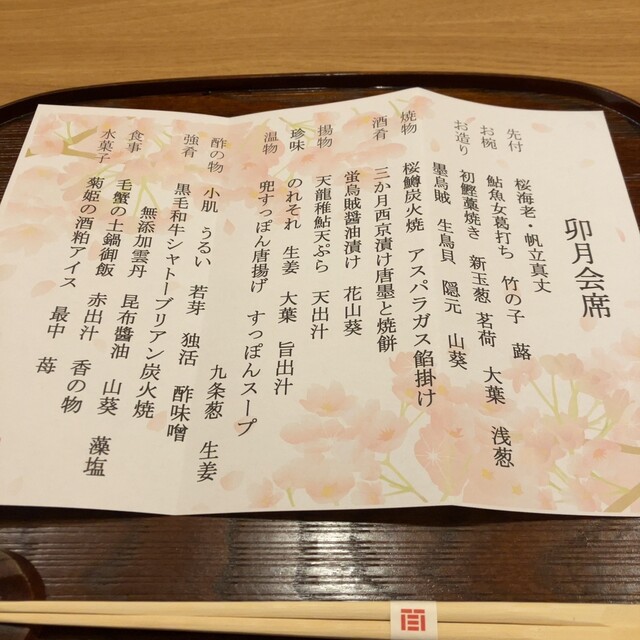 卯月会席
先付 桜海老・帆立真丈
お椀 鮎魚女葛打ち 竹の子 蕗
お造り 初鰹藁焼き 新玉葱 茗荷 大葉 浅葱
墨烏賊 生鳥貝 隠元 山葵
焼物 桜鱒炭火焼 アスパラガス餡掛け
酒肴 三か月西京漬け唐墨と焼餅
蛍烏賊醤油漬け 花山葵
揚物 天龍稚鮎天ぷら 天出汁
珍味 のれそれ 生姜 大葉 旨出汁
温物 兜すっぽん唐揚げ すっぽんスープ
九条葱 生姜
酢の物 小肌 うるい 若芽 独活 酢味噌
強肴 黒毛和牛シャトーブリアン炭火焼
無添加雲丹 昆布醬油 山葵 藻塩
食事 毛蟹の土鍋御飯 赤出汁 香の物
水菓子 菊姫の酒粕アイス 最中 苺